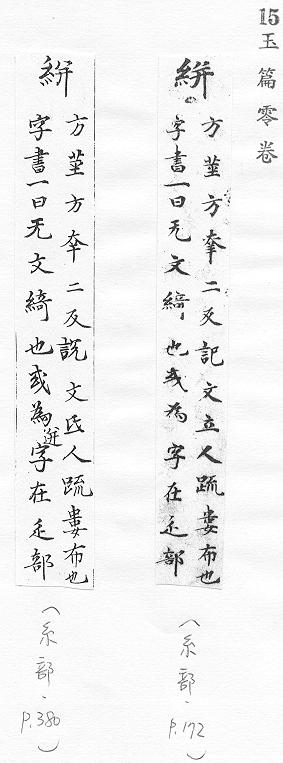 15玉篇零卷
絣
方莖方幸二反記文立人䟽婁布也
字書一曰无文綺也或為字在辵部
(糸部、P.172)
絣
方莖方幸二反説文氏人䟽婁布也
字書一曰无文綺也或為迸字在辵部
(糸部、P.380)